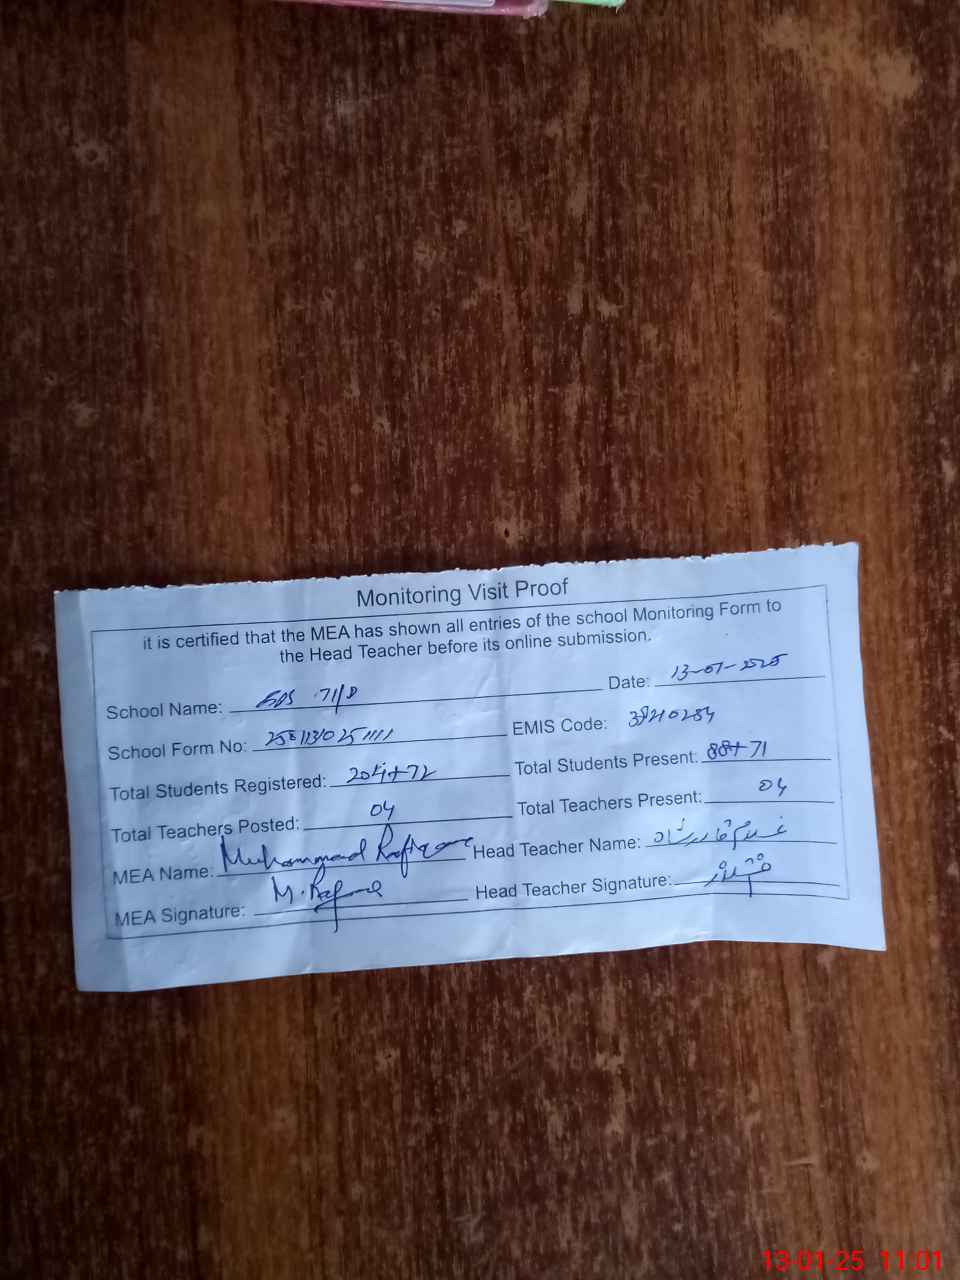 Monitoring Visit Proof
it is certified that the MEA has shown all entries of the school Monitoring Form to
the Head Teacher before its online submission.
School Name: GPS 71/D Date: 13-01-2025
School Form No: EMIS Code: 38210284
Total Students Registered: 204+72 Total Students Present: 88+71
Total Teachers Posted: 04 Total Teachers Present: 04
MEA Name: Muhammad Head Teacher Name:
MEA Signature: Head Teacher Signature:
13-01-25 11:01